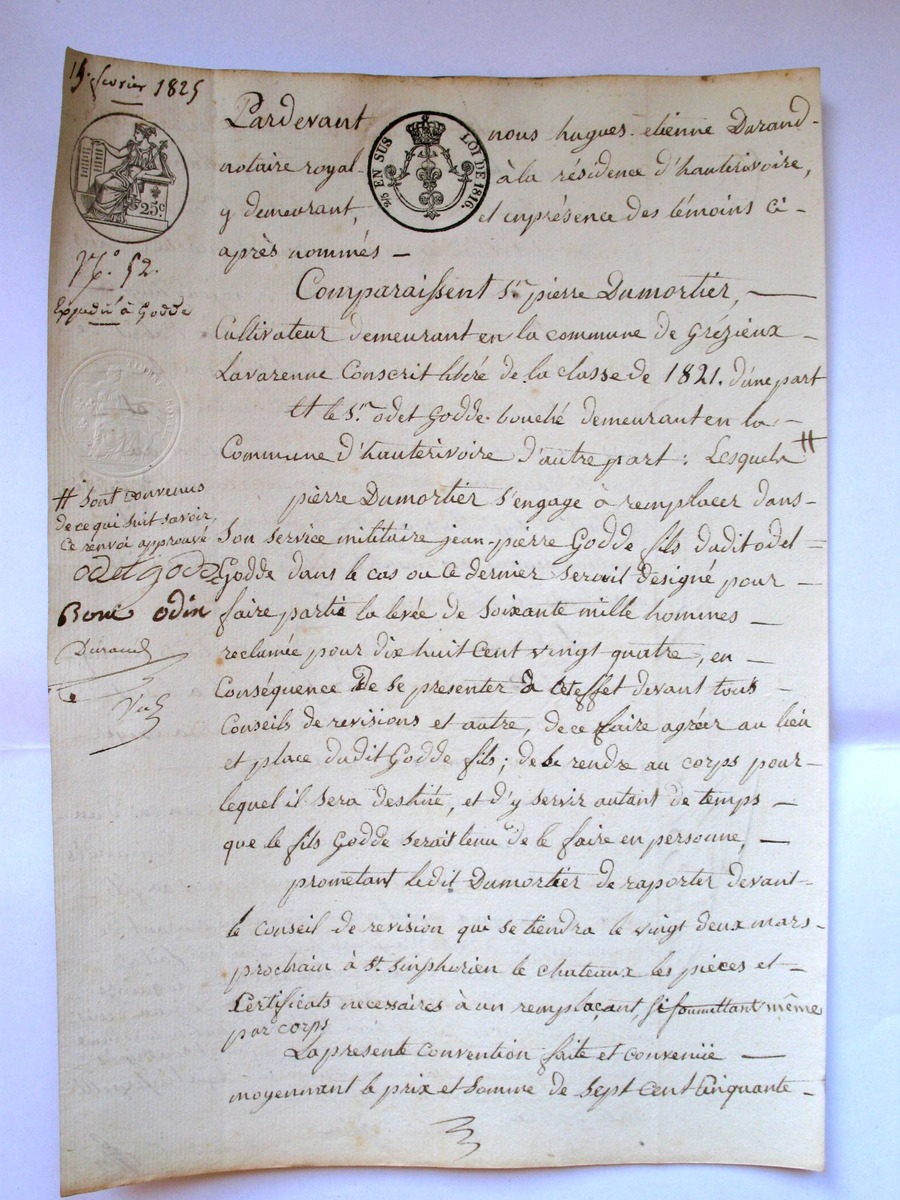 février 1825
25c
2/5 EN SUS
LOI DE 1816.
N.º 52.
Expédié à Godde
Pardevant nous hugues-etienne Durand-
notaire royal à la résidence d'hauterivoire,
y demeurant, et enprésence des témoins ci-
après nommés —
Comparaissent Sr. pierre Dumortier, —
Cultivateur demeurant en la commune de Grézieux —
Lavarenne Conscrit libéré de la classe de 1821. d'une part
Et le Sr. odet Godde-bouché demeurant en la —
Commune d'hauterivoire d'autre part: Lesquels #
# sont convenus
de ce qui suit savoir,
Ce renvoi approuvé
odet godde
odin
Durand
pierre Dumortier s'engage à remplacer dans-
Son service militaire jean-pierre Godde fils dudit odet =
Godde dans le cas ou ce dernier serait designé pour —
faire partie la levée de soixante mille hommes —
reclamée pour dix huit cent vingt quatre, en —
Conséquence de se presenter à cet effet devant tous —
Conseils de revisions et autre, de ce faire agréer au lieu
et place dudit Godde fils; de se rendre au corps pour-
lequel il sera destiné, et d'y servir autant de temps —
que le fils Godde serait tenu de le faire en personne, —
prometant ledit Dumortier de raporter devant-
le conseil de revision qui se tiendra le vingt deux mars-
prochain à St. Sinphorien le chateaux les pièces et —
Certificats necessaires à un remplaçant, si soumettant même
par corps
La presente Convention faite et convenüe —
moyennant le prix et somme de sept cent Cinquante -